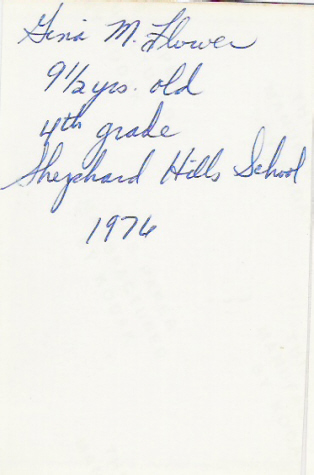 Gina M. Flower
9½ yrs. old
4th grade
Shephard Hills School
1976